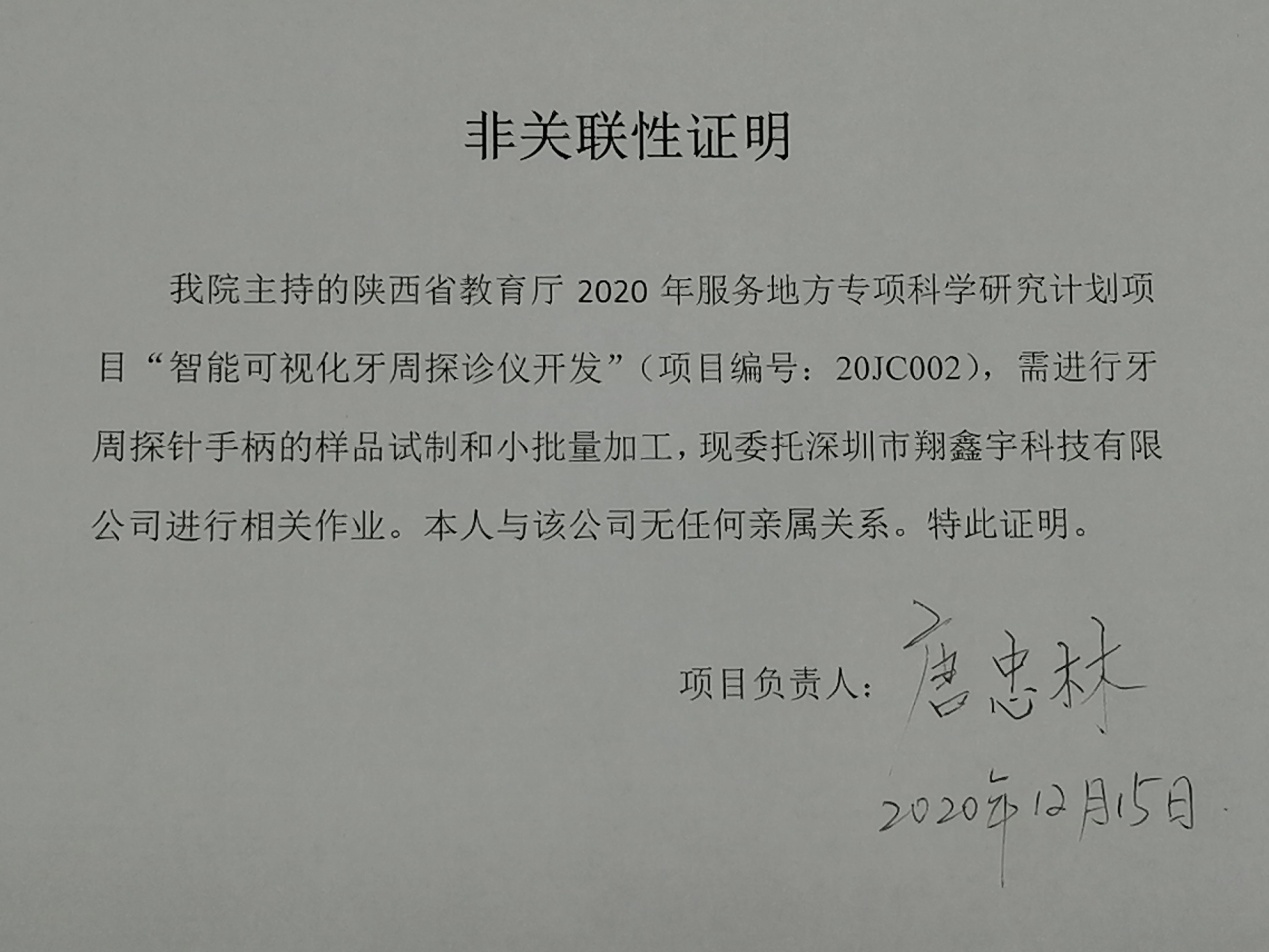 非关联性证明
我院主持的陕西省教育厅 2020 年服务地方专项科学研究计划项
目“智能可视化牙周探诊仪开发”（项目编号：20JC002），需进行牙
周探针手柄的样品试制和小批量加工，现委托深圳市翔鑫宇科技有限
公司进行相关作业。本人与该公司无任何亲属关系。特此证明。
项目负责人：唐忠林
2020年12月15日.